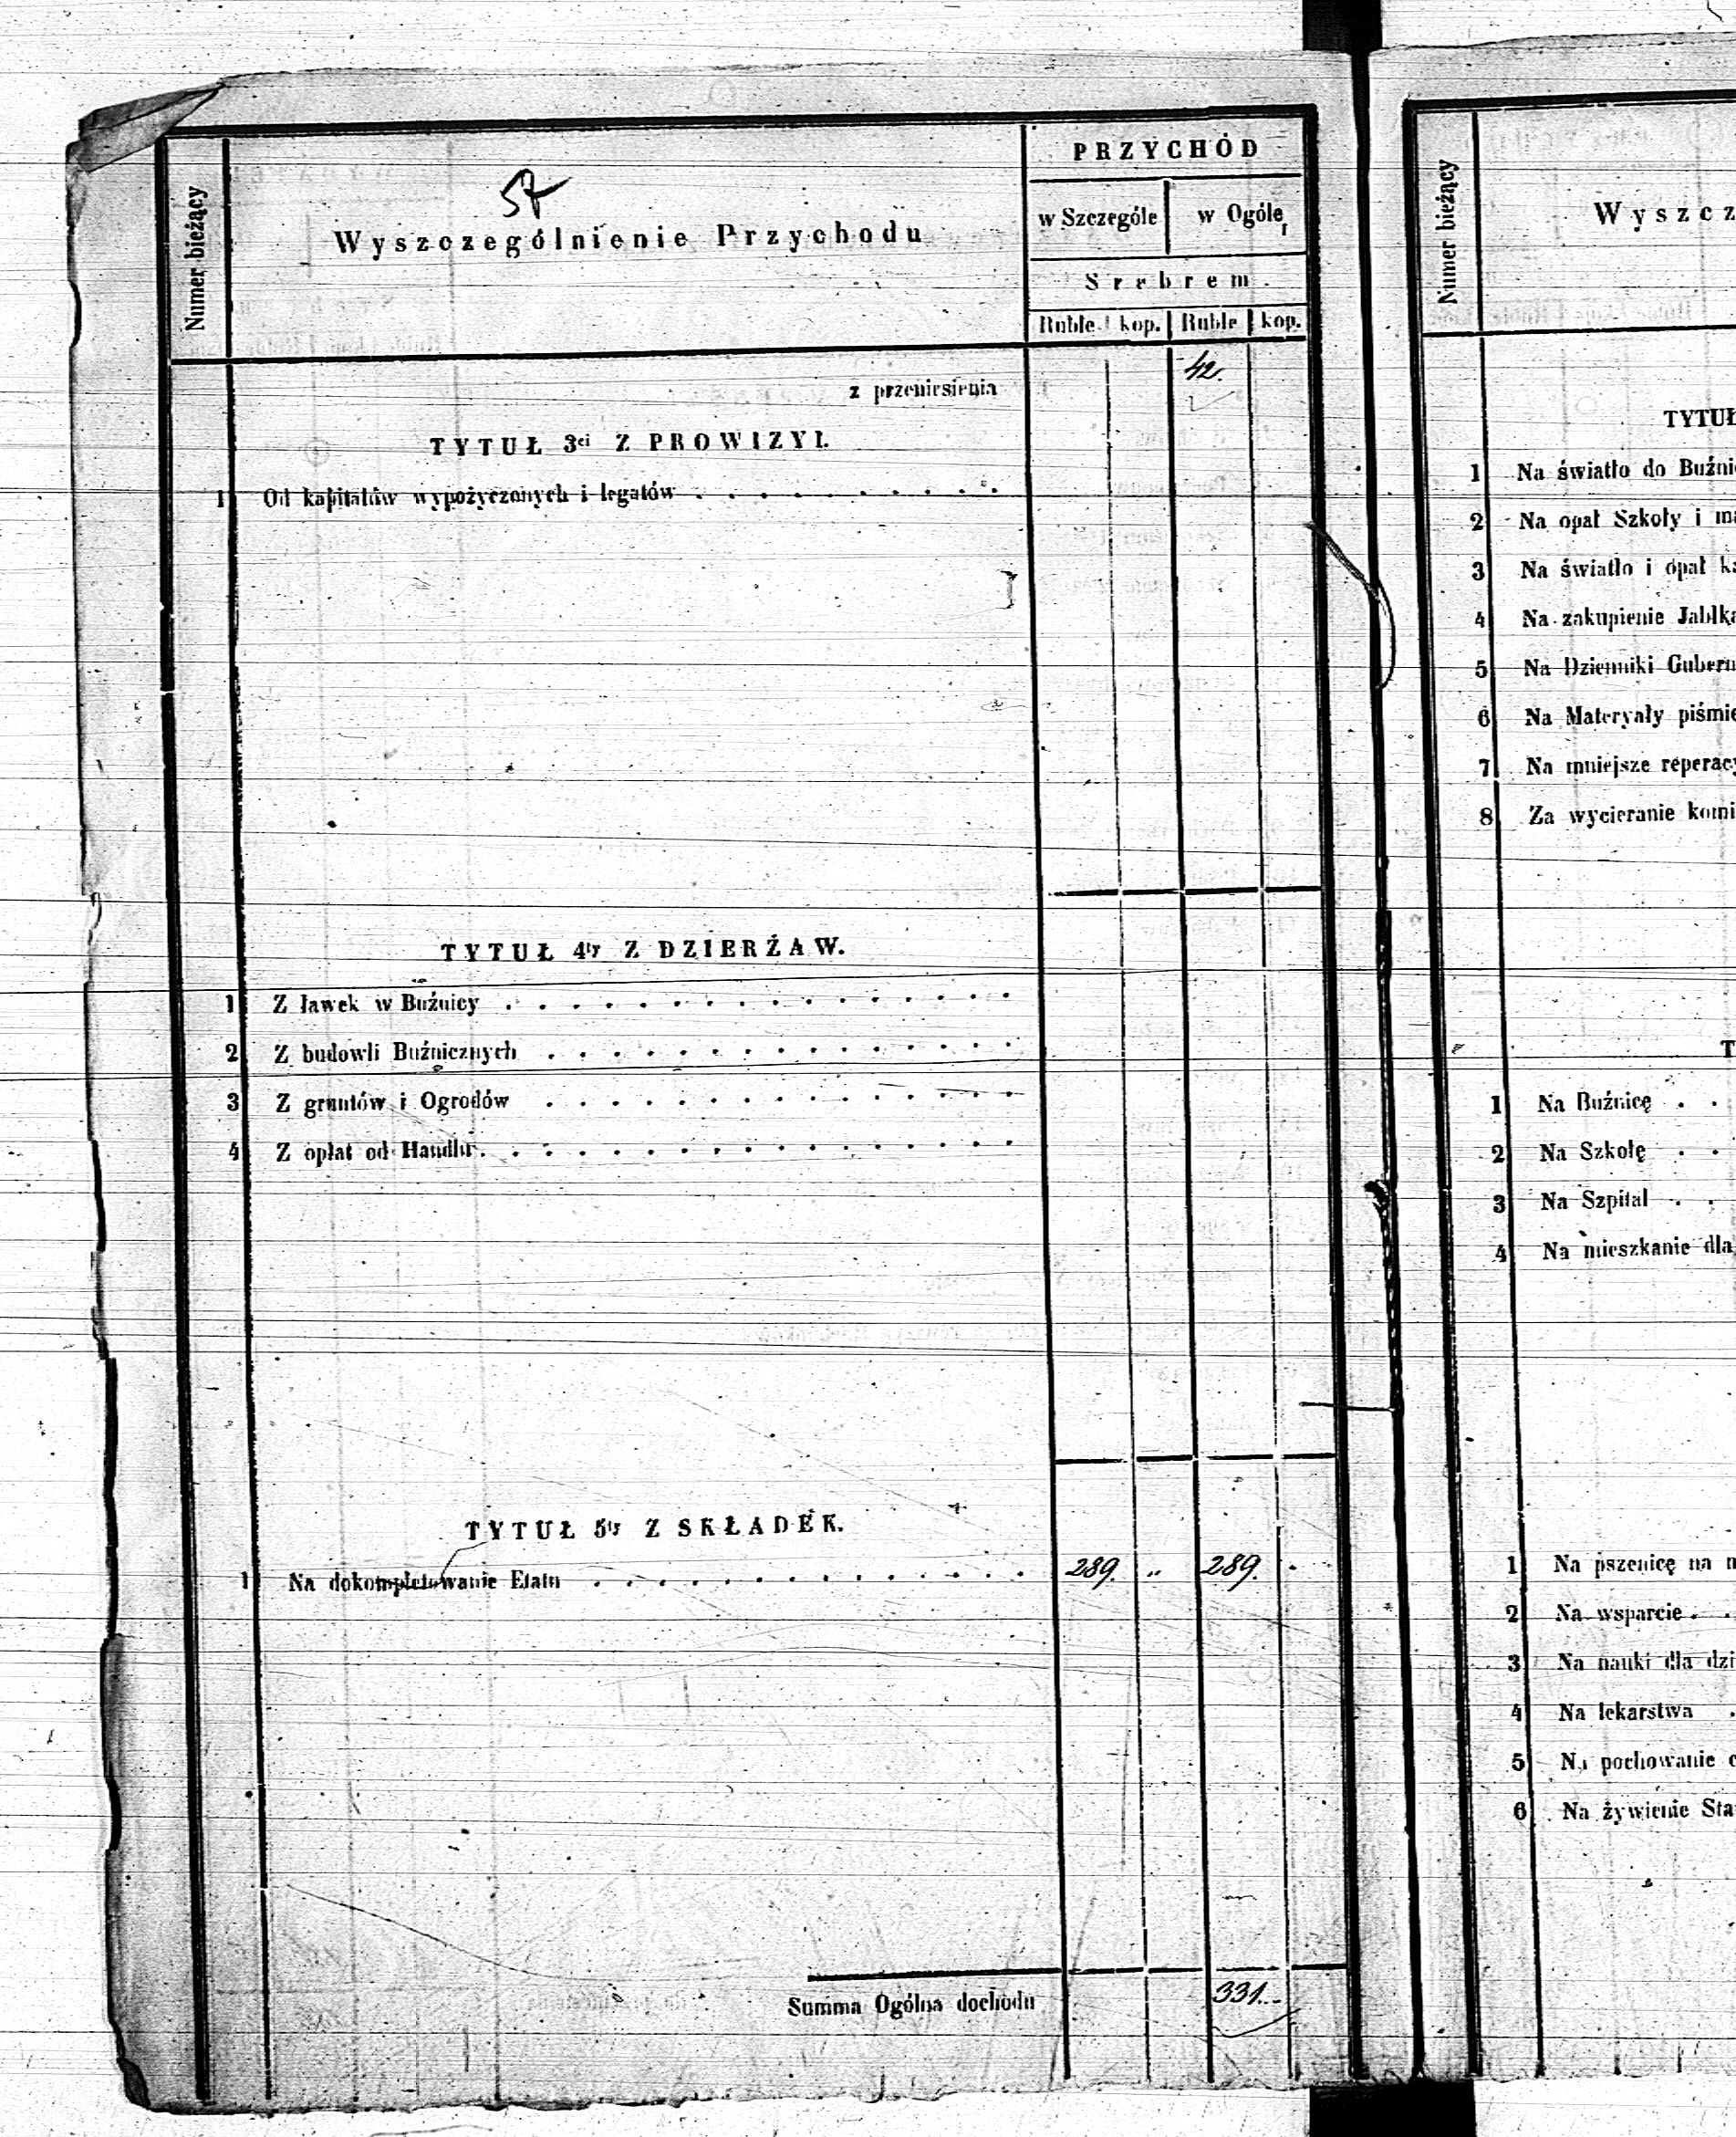 57
Numer bieżący
Wyszczególnienie Przychodu
PRZYCHÓD
w Szczególe w Ogóle
Srebrem
Ruble kop. Ruble kop.
z przeniesienia 42.
TYTUŁ 3ci Z PROWIZYI.
1 Od kapitałów wypożyczonych i legatów
TYTUŁ 4ty Z DZIERŻAW.
1 Z ławek w Buźnicy
2 Z budowli Buźnicznych
3 Z gruntów i Ogrodów
4 Z opłat od Handlu
TYTUŁ 5ty Z SKŁADEK.
1 Na dokompletowanie Etatu 289. „ 289.
Summa Ogólna dochodu 331.
Numer bieżący
Wyszcz
TYTUŁ
1 Na światło do Buźni
2 Na opał Szkoły i
3 Na światło i opał
4 Na zakupienie Jabłk
5 Na Dzienniki Gubern
6 Na Materyały piśmie
7 Na mniejsze reperac
8 Za wycieranie komi
T
1 Na Buźnicę
2 Na Szkołę
3 Na Szpital
4 Na mieszkanie dla
1 Na pszenicę na
2 Na wsparcie
3 Na nauki dla dzi
4 Na lekarstwa
5 Na pochowanie
6 Na żywienie Sta